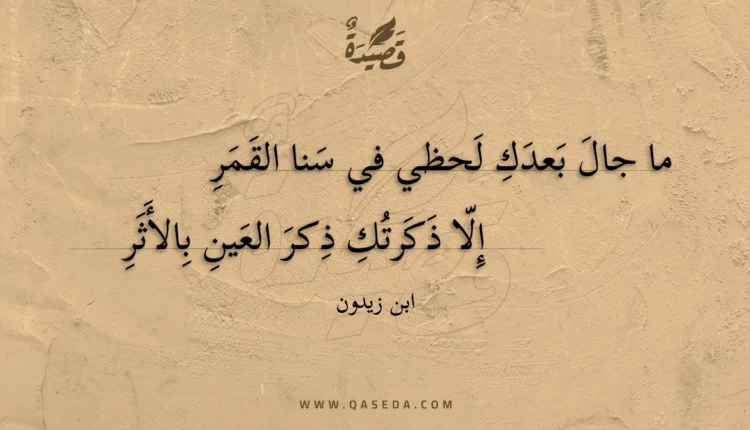 قَصِيدَةٌ
ما جالَ بَعدَكِ لَحظي في سَنا القَمَرِ
إِلّا ذَكَرتُكِ ذِكرَ العَينِ بِالأَثَرِ
ابن زيدون
WWW.QASEDA.COM